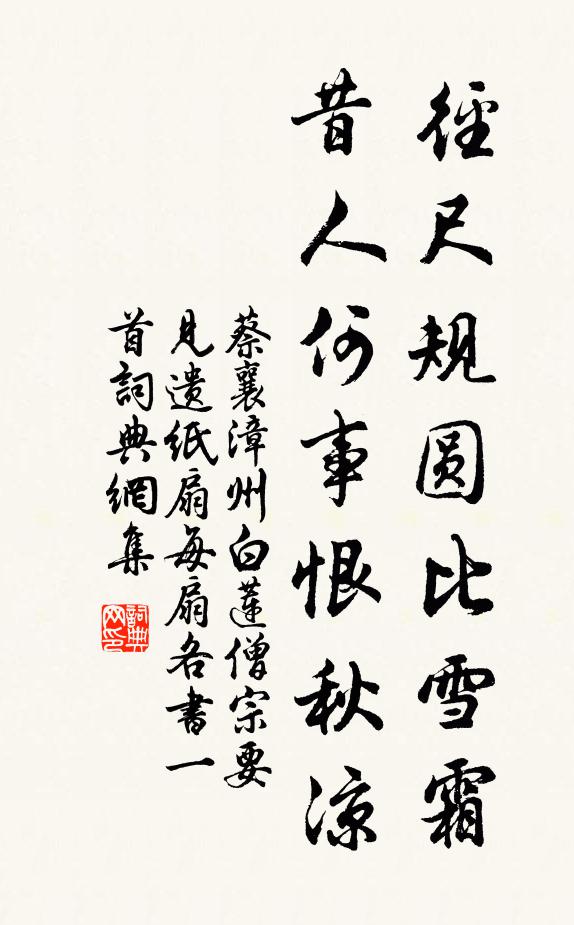 徑尺規圓比雪霜
昔人何事恨秋涼
蔡襄漳州白蓮僧宗要
見遺紙扇每扇各書一
首詞典網集
詞典
网印